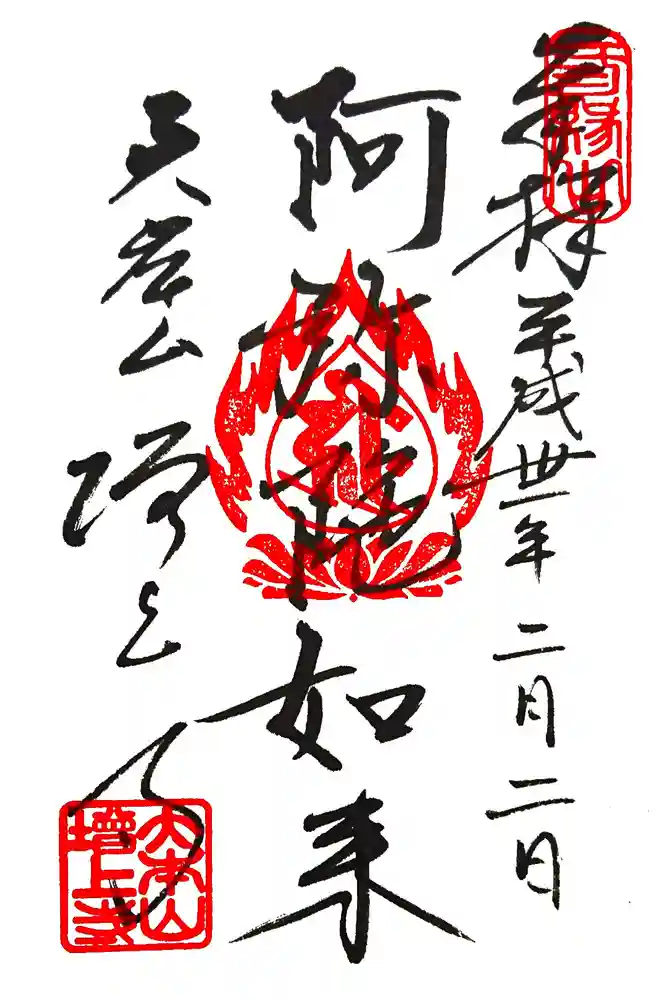 奉拝 平成卅一年二月二日
阿弥陀如来
大本山 増上寺
大本山
增上寺